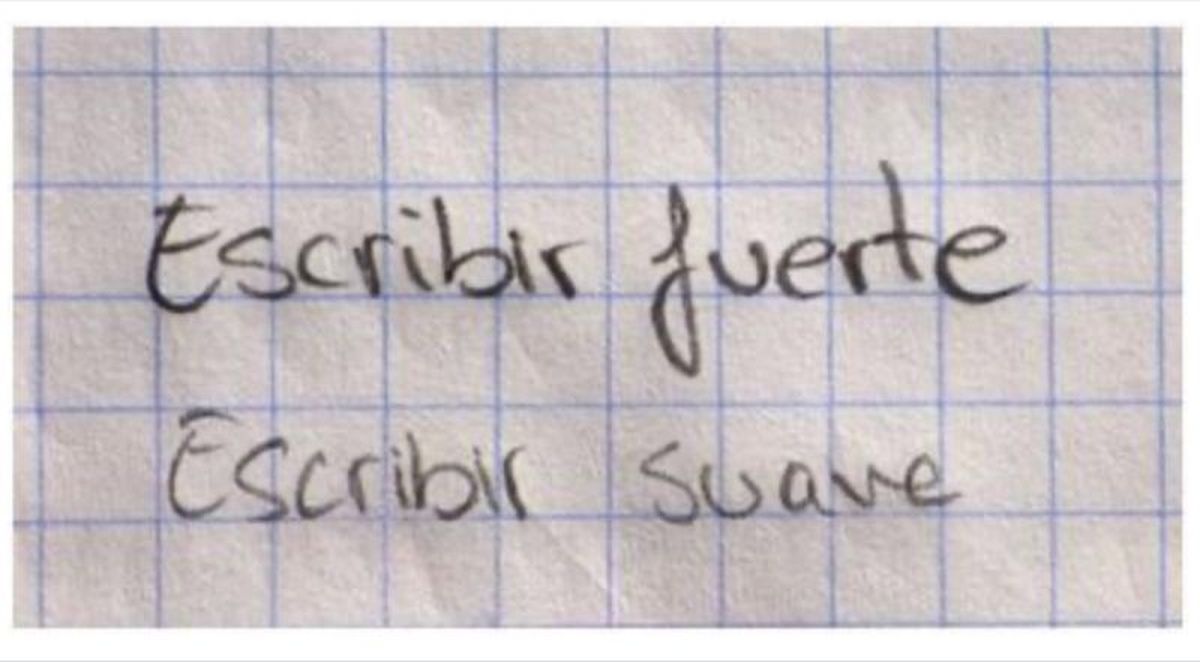 Escribir fuerte
Escribir suave